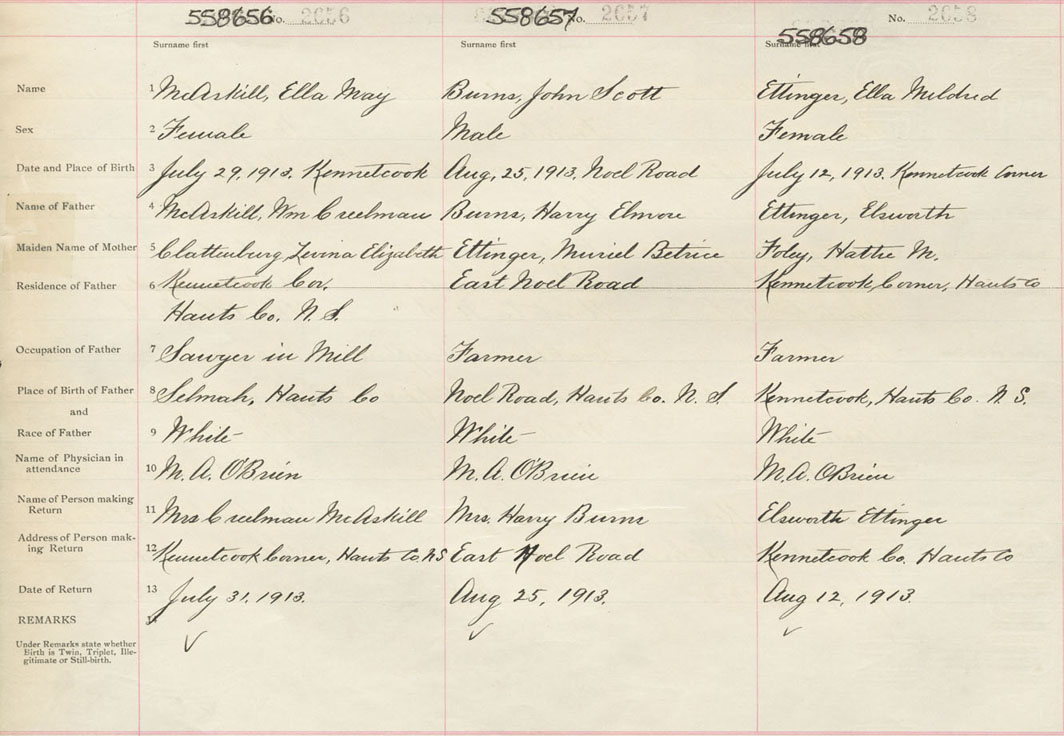 558656 No. 2656 558657 No. 2657 558658 No. 2658
Surname first Surname first Surname first
Name 1 McAskill, Ella May Burns, John Scott Ettinger, Ella Mildred
Sex 2 Female Male Female
Date and Place of Birth 3 July 29, 1913. Kennetcook Aug, 25, 1913, Noel Road July 12, 1913. Kennetcook Corner
Name of Father 4 McAskill, Wm Creelman Burns, Harry Elmore Ettinger, Elsworth
Maiden Name of Mother 5 Clattenburg Levina Elizabeth Ettinger, Muriel Betrice Foley, Hattie M.
Residence of Father 6 Kennetcook Cor. East Noel Road Kennetcook Corner, Hants Co
Hants Co. N. S.
Occupation of Father 7 Sawyer in Mill Farmer Farmer
Place of Birth of Father 8 Selmah, Hants Co Noel Road, Hants Co. N. S Kennetcook, Hants Co. N. S.
and
Race of Father 9 White White White
Name of Physician in
attendance 10 M. A. O'Brien M. A. O'Brien M. A. O'Brien
Name of Person making
Return 11 Mrs Creelman McAskill Mrs. Harry Burns Elsworth Ettinger
Address of Person mak-
ing Return 12 Kennetcook Corner, Hants Co. N S East Noel Road Kennetcook Co. Hants Co
Date of Return 13 July 31, 1913. Aug 25, 1913. Aug 12, 1913.
REMARKS 14
Under Remarks state whether
Birth is Twin, Triplet, Ille-
gitimate or Still-birth.